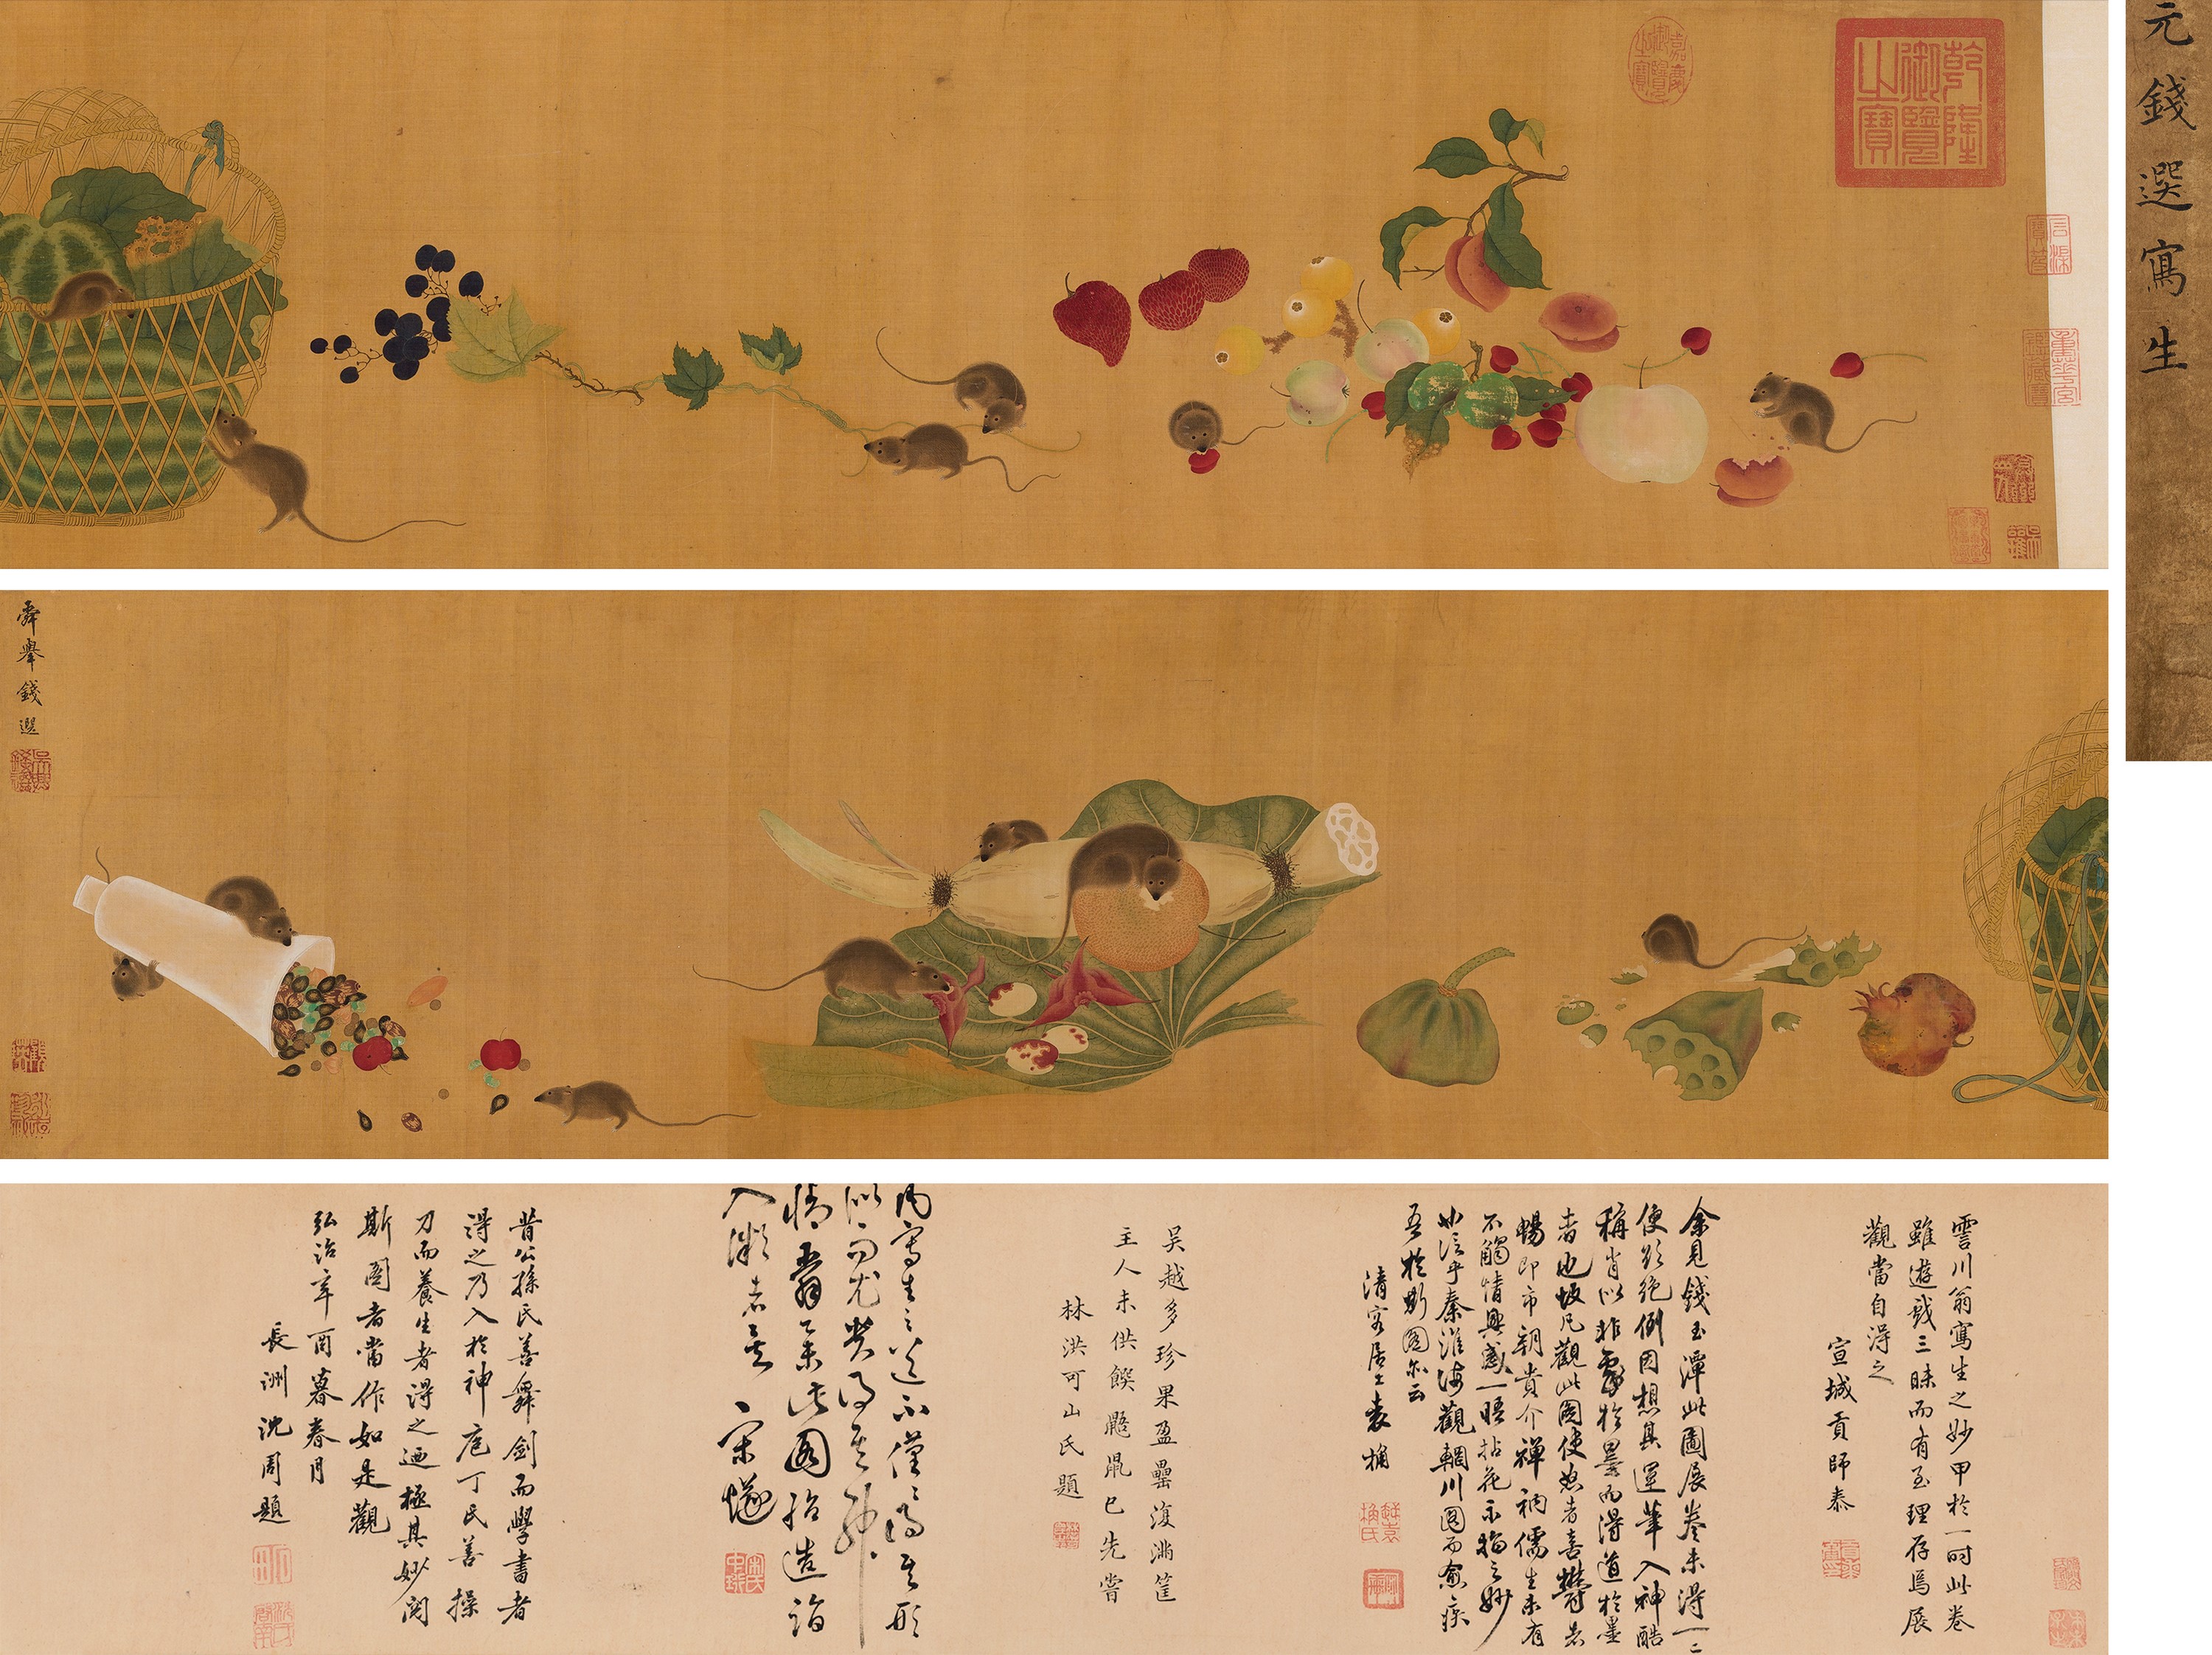 元錢選寫生
乾隆御覽之寶
嘉慶御覽之寶
舜舉錢選
霅川翁寫生之妙甲於一時此卷
雖遊戲三昧而有至理存焉展
觀當自得之
宣城貢師泰
余見錢玉潭此圖展卷未得一二
便欲絶倒因想其運筆入神酷
稱肖似非承於曇而得道於墨
者也故凡觀此圖使怒者喜鬱者
暢即市朝貴介禪衲儒生未有
不觸情興感一晤拈花示指之妙
也信乎秦淮海觀輞川圖而愈疾
吾於斯圖亦云
清容居士袁桷
吳越多珍果盈罍復滿筐
主人未供饌鼷鼠已先嘗
林洪可山氏題
內寫生之筆不僅得其形
似而尤貴得其神
情翁筆此圖殆造詣
入微者矣 宋燧
昔公孫氏善舞劍而學書者
得之乃入於神庖丁氏善操
刀而養生者得之迺極其妙閱
斯圖者當作如是觀
弘治辛酉暮春月
長洲沈周題